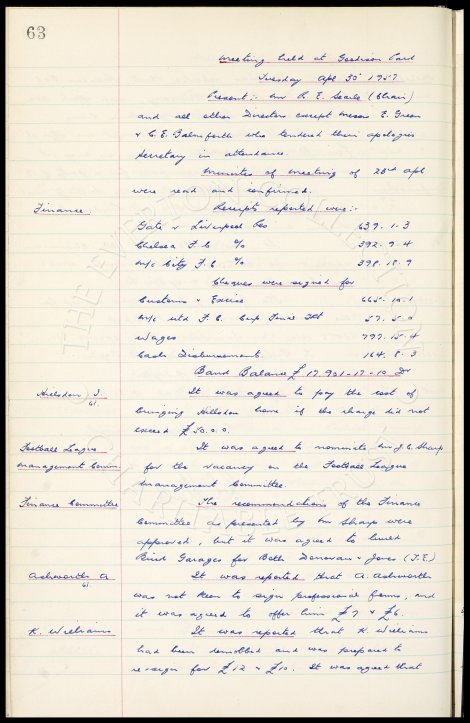 63
Meeting held at Goodison Park
Tuesday Apl 30th 1957
Present:- Mr R. E. Searle (Chair)
and all other Directors except Messrs E. Green
& C. E. Balmforth who tendered their apologies
Secretary in attendance.
Minutes of meeting of 23rd Apl
were read and confirmed.
Finance
Receipts reported were:-
Gate v Liverpool Res 639. 1. 3
Chelsea F.C. % 392. 9. 4
M/c City F.C. % 398. 18. 9
Cheques were signed for
Customs & Excise 665. 10. 1
M/c Utd F.C. Cup Final Tkt 57. 5. 0
Wages 797. 15. 4
Cash Disbursements 164. 8. 3
Bank Balance £17,901-17-10 Dr
Hillsdon J.
61.
It was agreed to pay the cost of
bringing Hillsdon home if the charge did not
exceed £50.0.0.
Football League
Management Comm.
It was agreed to nominate Mr J. C. Sharp
for the vacancy on the Football League
Management Committee.
Finance Committee
The recommendations of the Finance
Committee as presented by Mr Sharp were
approved, but it was agreed to build
Brick Garages for Both Donovan & Jones (T.E.)
Ashworth A
61.
It was reported that A. Ashworth
was not keen to sign professional forms, and
it was agreed to offer him £7 & £6.
K. Williams
It was reported that K. Williams
had been demobbed and was prepared to
re-sign for £12 & £10. It was agreed that